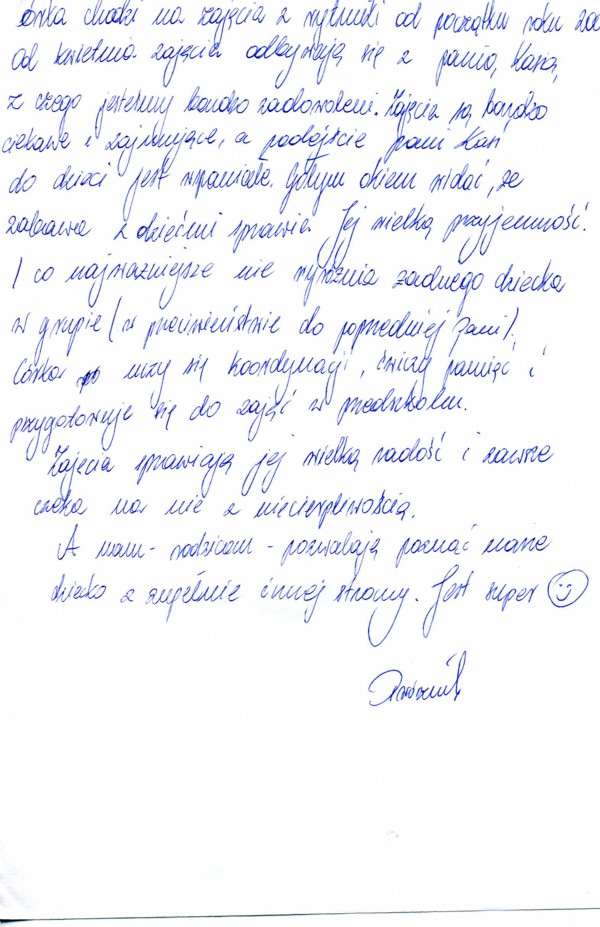 córka chodzi na zajęcia z rytmiki od początku roku 200
Od kwietnia zajęcia odbywają się z panią Kasią,
z czego jesteśmy bardzo zadowoleni. Zajęcia są bardzo
ciekawe i zajmujące, a podejście pani Kasi
do dzieci jest wspaniałe. Gołym okiem widać, że
zabawa z dziećmi sprawia Jej wielką przyjemność.
I co najważniejsze nie wyróżnia żadnego dziecka
w grupie (w przeciwieństwie do poprzedniej Pani).
Córka uczy się koordynacji, ćwiczy pamięć i
przygotowuje się do zajęć w przedszkolu.
Zajęcia sprawiają jej wielką radość i zawsze
czeka na nie z niecierpliwością.
A nam - rodzicom - pozwalają poznać nasze
dziecko z zupełnie innej strony. Jest super